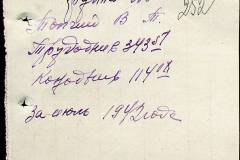 252
В. Т.
Трудодней 343.57
Конодней 114.08
За июль 1942 года